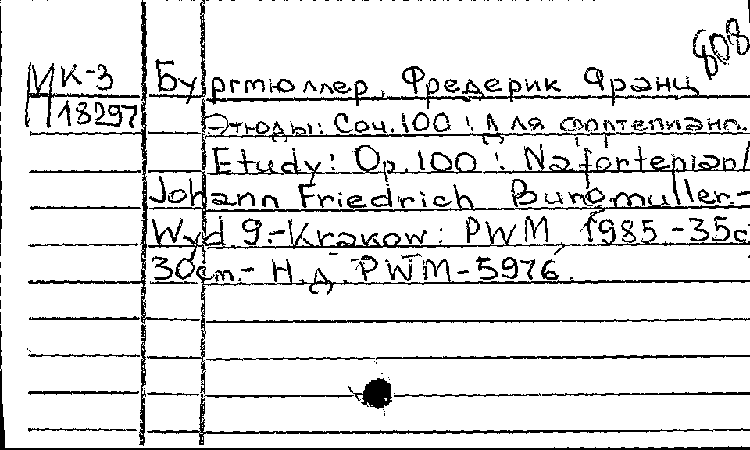 808
МК-3 Бургмюллер, Фредерик Франц
18297 Этюды: Соч.100 : Для фортепиано.
Etudy: Op.100 : Na fortepian/
Johann Friedrich Burgmuller.-
Wyd 9.-Krakow: PWM, 1985 -35с
30см.- Н.д. PWM-5976.